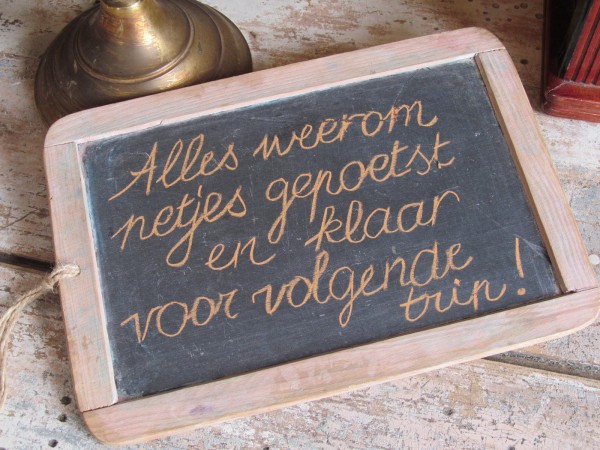 Alles weerom
netjes gepoetst
en klaar
voor volgende
trip!